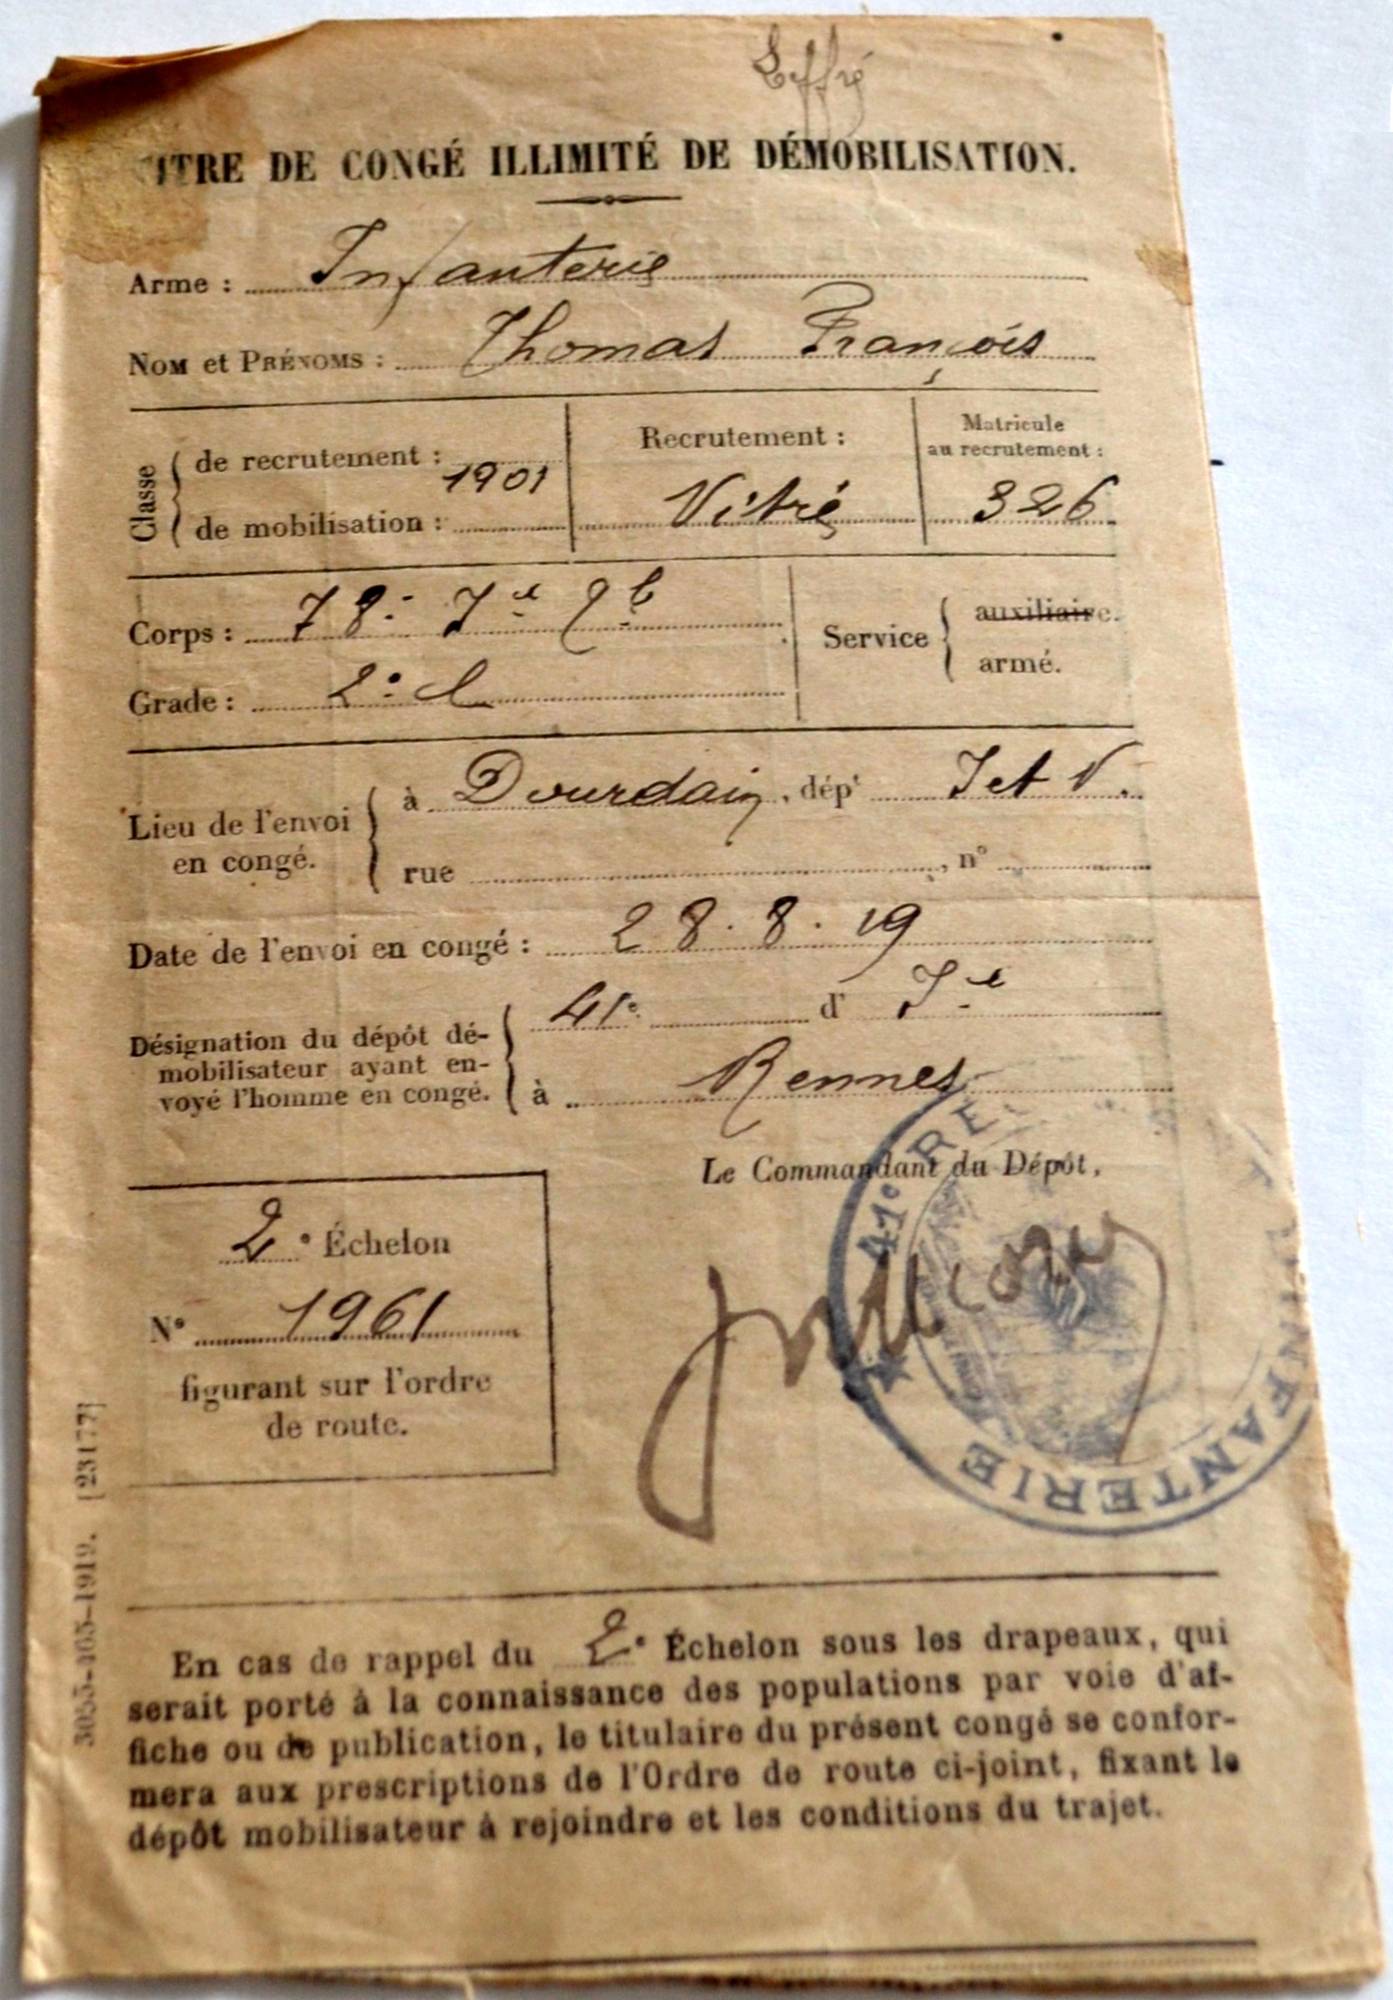 ITRE DE CONGÉ ILLIMITÉ DE DÉMOBILISATION.
Arme : Infanterie
NOM et PRÉNOMS : Thomas François
Classe
de recrutement :
1901
de mobilisation :
Recrutement :
Vitré
Matricule
au recrutement :
326
Corps : 78e
Grade : 2e
Service
auxiliaire.
armé.
Lieu de l'envoi
en congé.
à Dourdain, dépt I et V.
rue , n°
Date de l'envoi en congé : 28.8.19
Désignation du dépôt dé-
mobilisateur ayant en-
voyé l'homme en congé.
41e d' Ie
à Rennes
Le Commandant du Dépôt,
41e RE INFANTERIE
INFANTERIE
2e Échelon
N° 1961
figurant sur l'ordre
de route.
3055-405-1919. [23177]
En cas de rappel du 2e Échelon sous les drapeaux, qui
serait porté à la connaissance des populations par voie d'af-
fiche ou de publication, le titulaire du présent congé se confor-
mera aux prescriptions de l'Ordre de route ci-joint, fixant le
dépôt mobilisateur à rejoindre et les conditions du trajet.